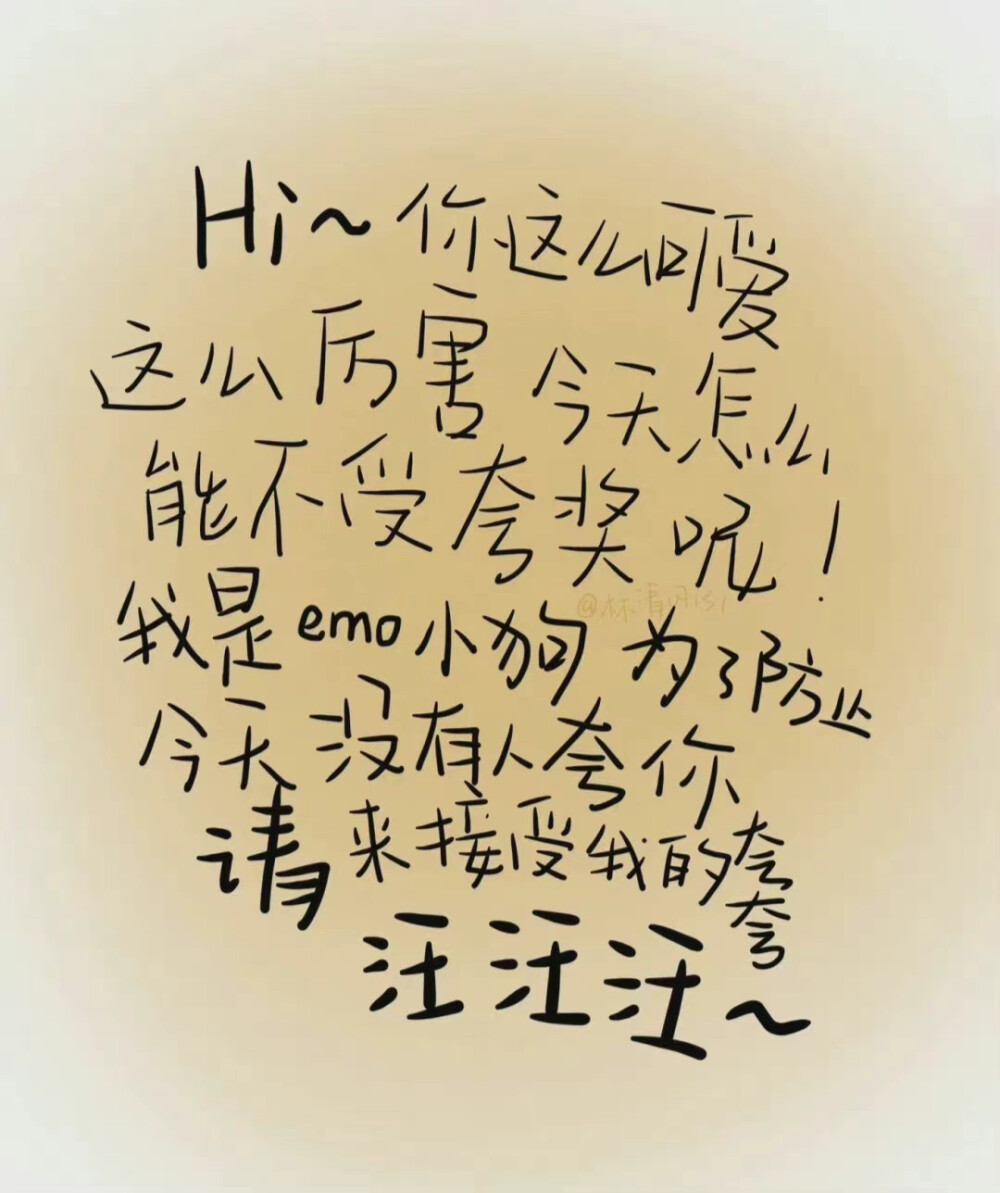 Hi~你这么可爱
这么厉害 今天怎么
能不受夸奖呢!
我是emo小狗 为了防止
今天没有人夸你
请来接受我的夸夸
汪汪汪~